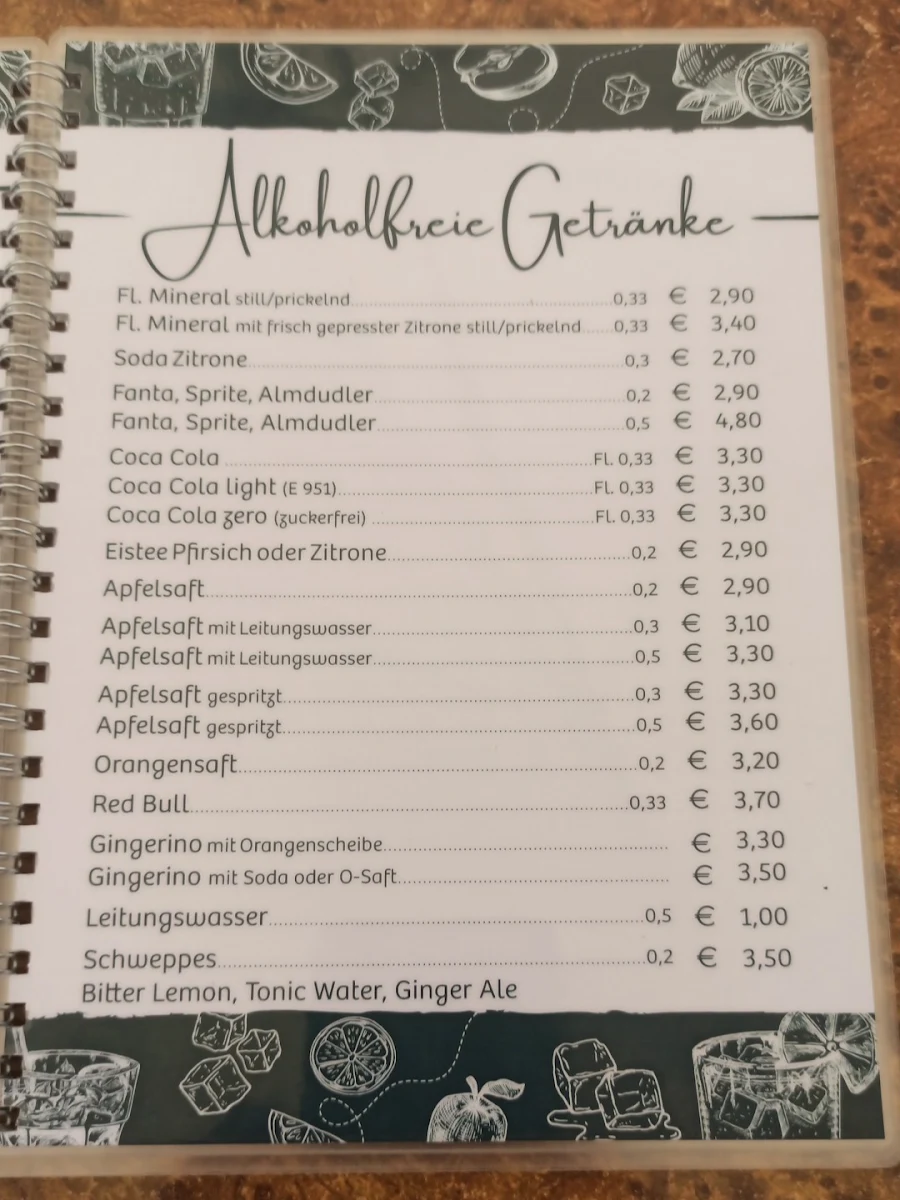 Alkoholfreie Getränke
Fl. Mineral still/prickelnd 0,33 € 2,90
Fl. Mineral mit frisch gepresster Zitrone still/prickelnd 0,33 € 3,40
Soda Zitrone 0,3 € 2,70
Fanta, Sprite, Almdudler 0,2 € 2,90
Fanta, Sprite, Almdudler 0,5 € 4,80
Coca Cola FL. 0,33 € 3,30
Coca Cola light (E 951) FL. 0,33 € 3,30
Coca Cola zero (zuckerfrei) FL. 0,33 € 3,30
Eistee Pfirsich oder Zitrone 0,2 € 2,90
Apfelsaft 0,2 € 2,90
Apfelsaft mit Leitungswasser 0,3 € 3,10
Apfelsaft mit Leitungswasser 0,5 € 3,30
Apfelsaft gespritzt 0,3 € 3,30
Apfelsaft gespritzt 0,5 € 3,60
Orangensaft 0,2 € 3,20
Red Bull 0,33 € 3,70
Gingerino mit Orangenscheibe € 3,30
Gingerino mit Soda oder O-Saft € 3,50
Leitungswasser 0,5 € 1,00
Schweppes 0,2 € 3,50
Bitter Lemon, Tonic Water, Ginger Ale